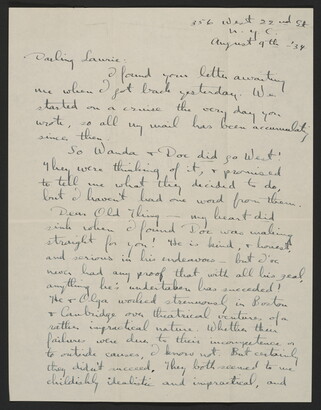 356 West 22nd St
N.Y.C.
August 9th '34
Darling Laurie:
I found your letter awaiting
me when I got back yesterday. We
started on a cruise the very day you
wrote, so all my mail has been accumulating
since then.
So Wanda & Doc did go West!
They were thinking of it, & promised
to tell me what they decided to do,
but I haven't had one word from them.
Dear Old Thing — my heart did
sink when I found Doc was making
straight for you! He is kind, & honest,
and serious in his endeavors — but I've
never had any proof that with all his zeal,
anything he's undertaken has succeeded!
He & Olga worked strenuously in Boston
& Cambridge over theatrical ventures of a
rather impractical nature. Whether their
failures were due to their incompetence or
to outside causes, I know not. But certainly
they didn't succeed. They both seemed to me
childishly idealistic and impractical, and